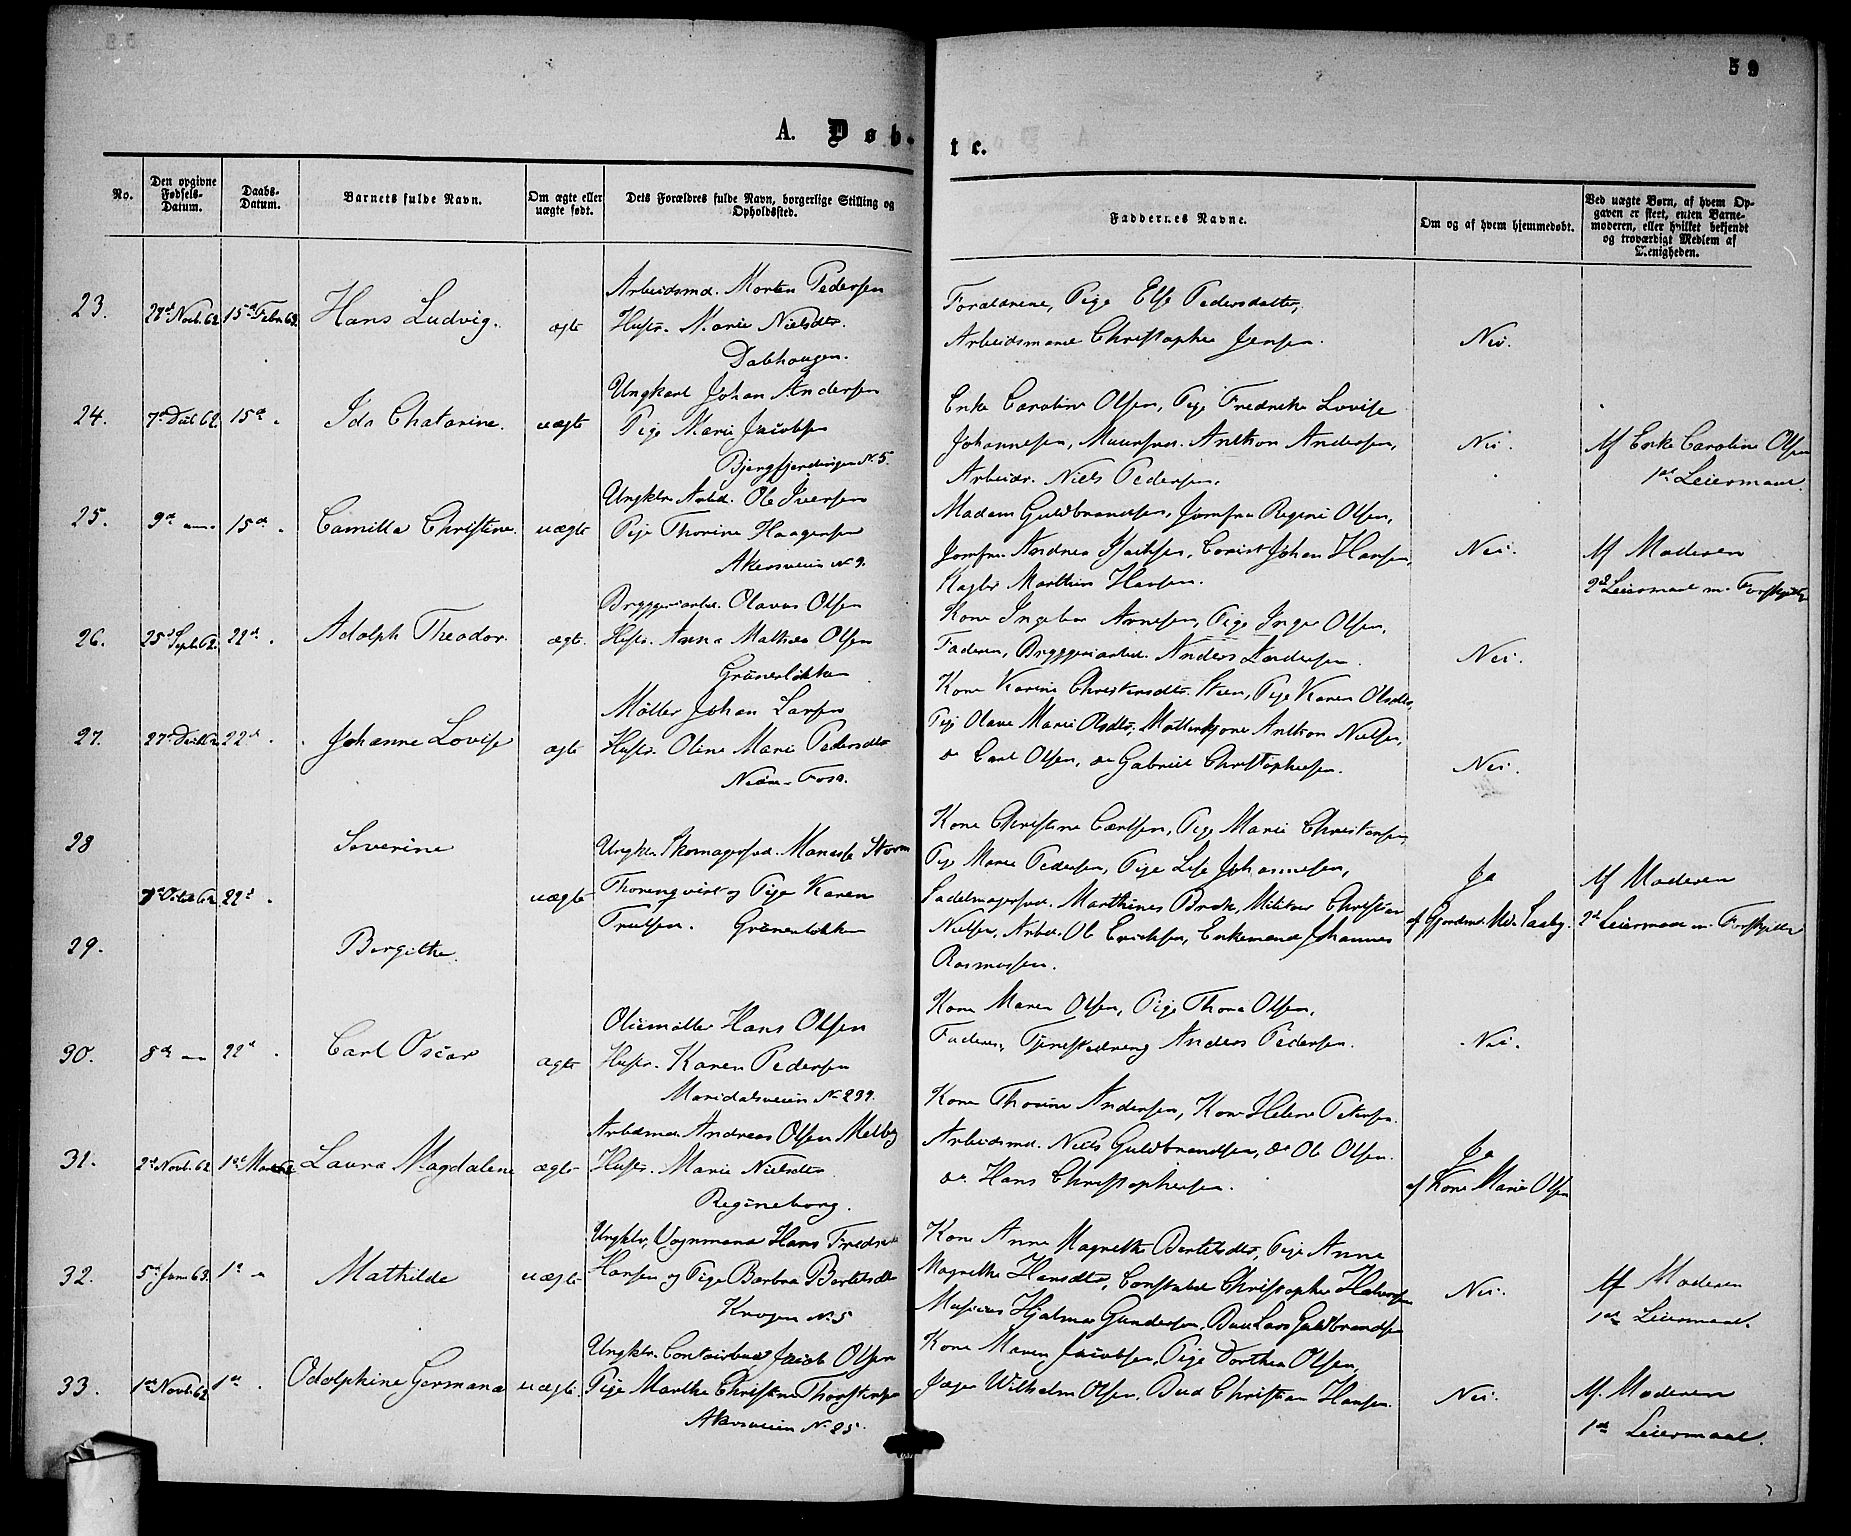 59
A. Døb-
te.
No.
Den opgivne Fødsels-Datum.
Daabs-Datum.
Barnets fulde Navn.
Om ægte eller uægte født.
Dets Forældres fulde Navn, borgerlige Stilling og Opholdssted.
Faddernes Navne.
Om og af hvem hjemmedøbt.
Ved uægte Børn, af hvem Opgaven er skeet, enten Barnemoderen, eller hvilket bekjendt og troværdigt Medlem af Menigheden.
23.
Novb. 62
15d Febr. 63
Hans Ludvig.
ægte
Arbeidsmd. Morten Pedersen
Hustr. Marie Nielsdtr.
Dalehaugen.
Forældrene, Pige Else Pedersdatter,
Arbeidsmand Christopher Jensen.
Nei.
24.
7de Decb 62.
15d "
Ida Chatarine.
uægte
Ungkarl Johan Andersen
Pige Marie Jacobsen
Bjergfjerdingen No 5.
Enke Caroline Olsen, Pige Fredrikke Lovise
Johannesen, Muursvd. Anthon Andersen,
Arbeidr. Niels Pedersen.
Nei.
Af Enke Caroline Olsen
1st Leiermaal.
25.
9de "
15d "
Camilla Christine.
uægte
Ungklr. Arbd. Ole Iversen
Pige Thorine Haagensen
Akersveien No 9.
Madam Guldbrandsen, Jomfru Regine Olsen,
Jomfru Andrea Isachsen, Johan Hansen,
Marthin Hansen.
Nei.
Af Moderen
2d Leiermaal m. Forskjellig
26.
25d Septb. 62.
22d "
Adolph Theodor.
ægte.
Bryggeriarbd. Olavus Olsen
Hustr. Anna Mathea Olsen
Grünerløkken
Kone Ingebor Arnesen, Pige Inger Olsen,
Faderen, Bryggeriarbd. Anders Andersen.
Nei.
27.
27d Decb 62
22d "
Johanne Lovise
ægte
Møller Johan Larsen
Hustr. Oline Marie Pedersdtr
Nedre-Foss.
Kone Karine Christensdtr. Steen, Pige Karen Olsdtr,
Pige Olava Marie Olsdtr, Anthon Nielsen,
do Carl Olsen, do Gabriel Christophersen.
Nei.
28
Severine
7de Octbr 62
22d "
uægte
Ungklr. Skomagersvd. Manasse Storm
Thorenqvist og Pige Karen
Truelsen. Grünerløkken
Kone Christine Carlsen, Pige Marie Christensen,
Pige Maren Pedersen, Pige Lise Johannesen,
Sadelmagersvd. Marthines Brek, Militær Christian
Nielsen, Arbd. Ole Erichsen, Enkemand Johannes
Rasmussen.
Ja
af Gjordemd. Mdr. Saaby.
Af Moderen
2d Leiermaal m. Forskjellig
29.
Bergithe.
30.
8de "
22d "
Carl Oscar
ægte
Oliemøller Hans Olsen
Hustr. Karen Pedersen
Maridalsveien No 299.
Kone Maren Olsen, Pige Thona Olsen,
Faderen, Tjenestedreng Anders Pedersen.
Nei.
31.
2d Novb. 62
1st Marts 63
Laura Magdalene
ægte
Arbdsmd. Andreas Olsen Melby
Hustr. Marie Nielsdtr
Regineborg.
Kone Thorine Andersen, Kone Helene Petersen.
Arbeidsmd. Niels Guldbrandsen, do Ole Olsen.
do. Hans Christophersen.
Ja
af Kone Marie Olsen
32.
5te Janr 63.
1st "
Mathilde
uægte
Ungklr, Vognmand Hans Fredrik
Hansen og Pige Barbra Bertelsdtr
Krogen No 5
Kone Anne Magrethe Bertelsdtr, Pige Anne
Magrethe Hansdtr, Constabel Christopher Halvorsen
Musicus Hjalmar Gundersen, Bud Lars Guldbrandsen
Nei.
Af Moderen
1st Leiermaal.
33.
1st Novb. 62
1st "
Odolphine Germana
uægte
Ungklr. Contoirbud Jacob Olsen
Pige Marthe Christine Thorstensen
Akersveien No 25.
Kone Maren Jacobsen, Pige Dorthea Olsen,
Jæger Wilhelm Olsen, Bud Christian Hansen.
Nei.
Af Moderen
1st Leiermaal.